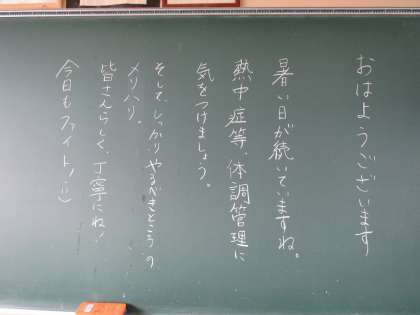 おはようございます
暑い日が続いていますね。
熱中症等、体調管理に
気をつけましょう。
そして、しっかりやるべきところの
メリハリ。
皆さんらしく、丁寧にね!
今日もファイト!